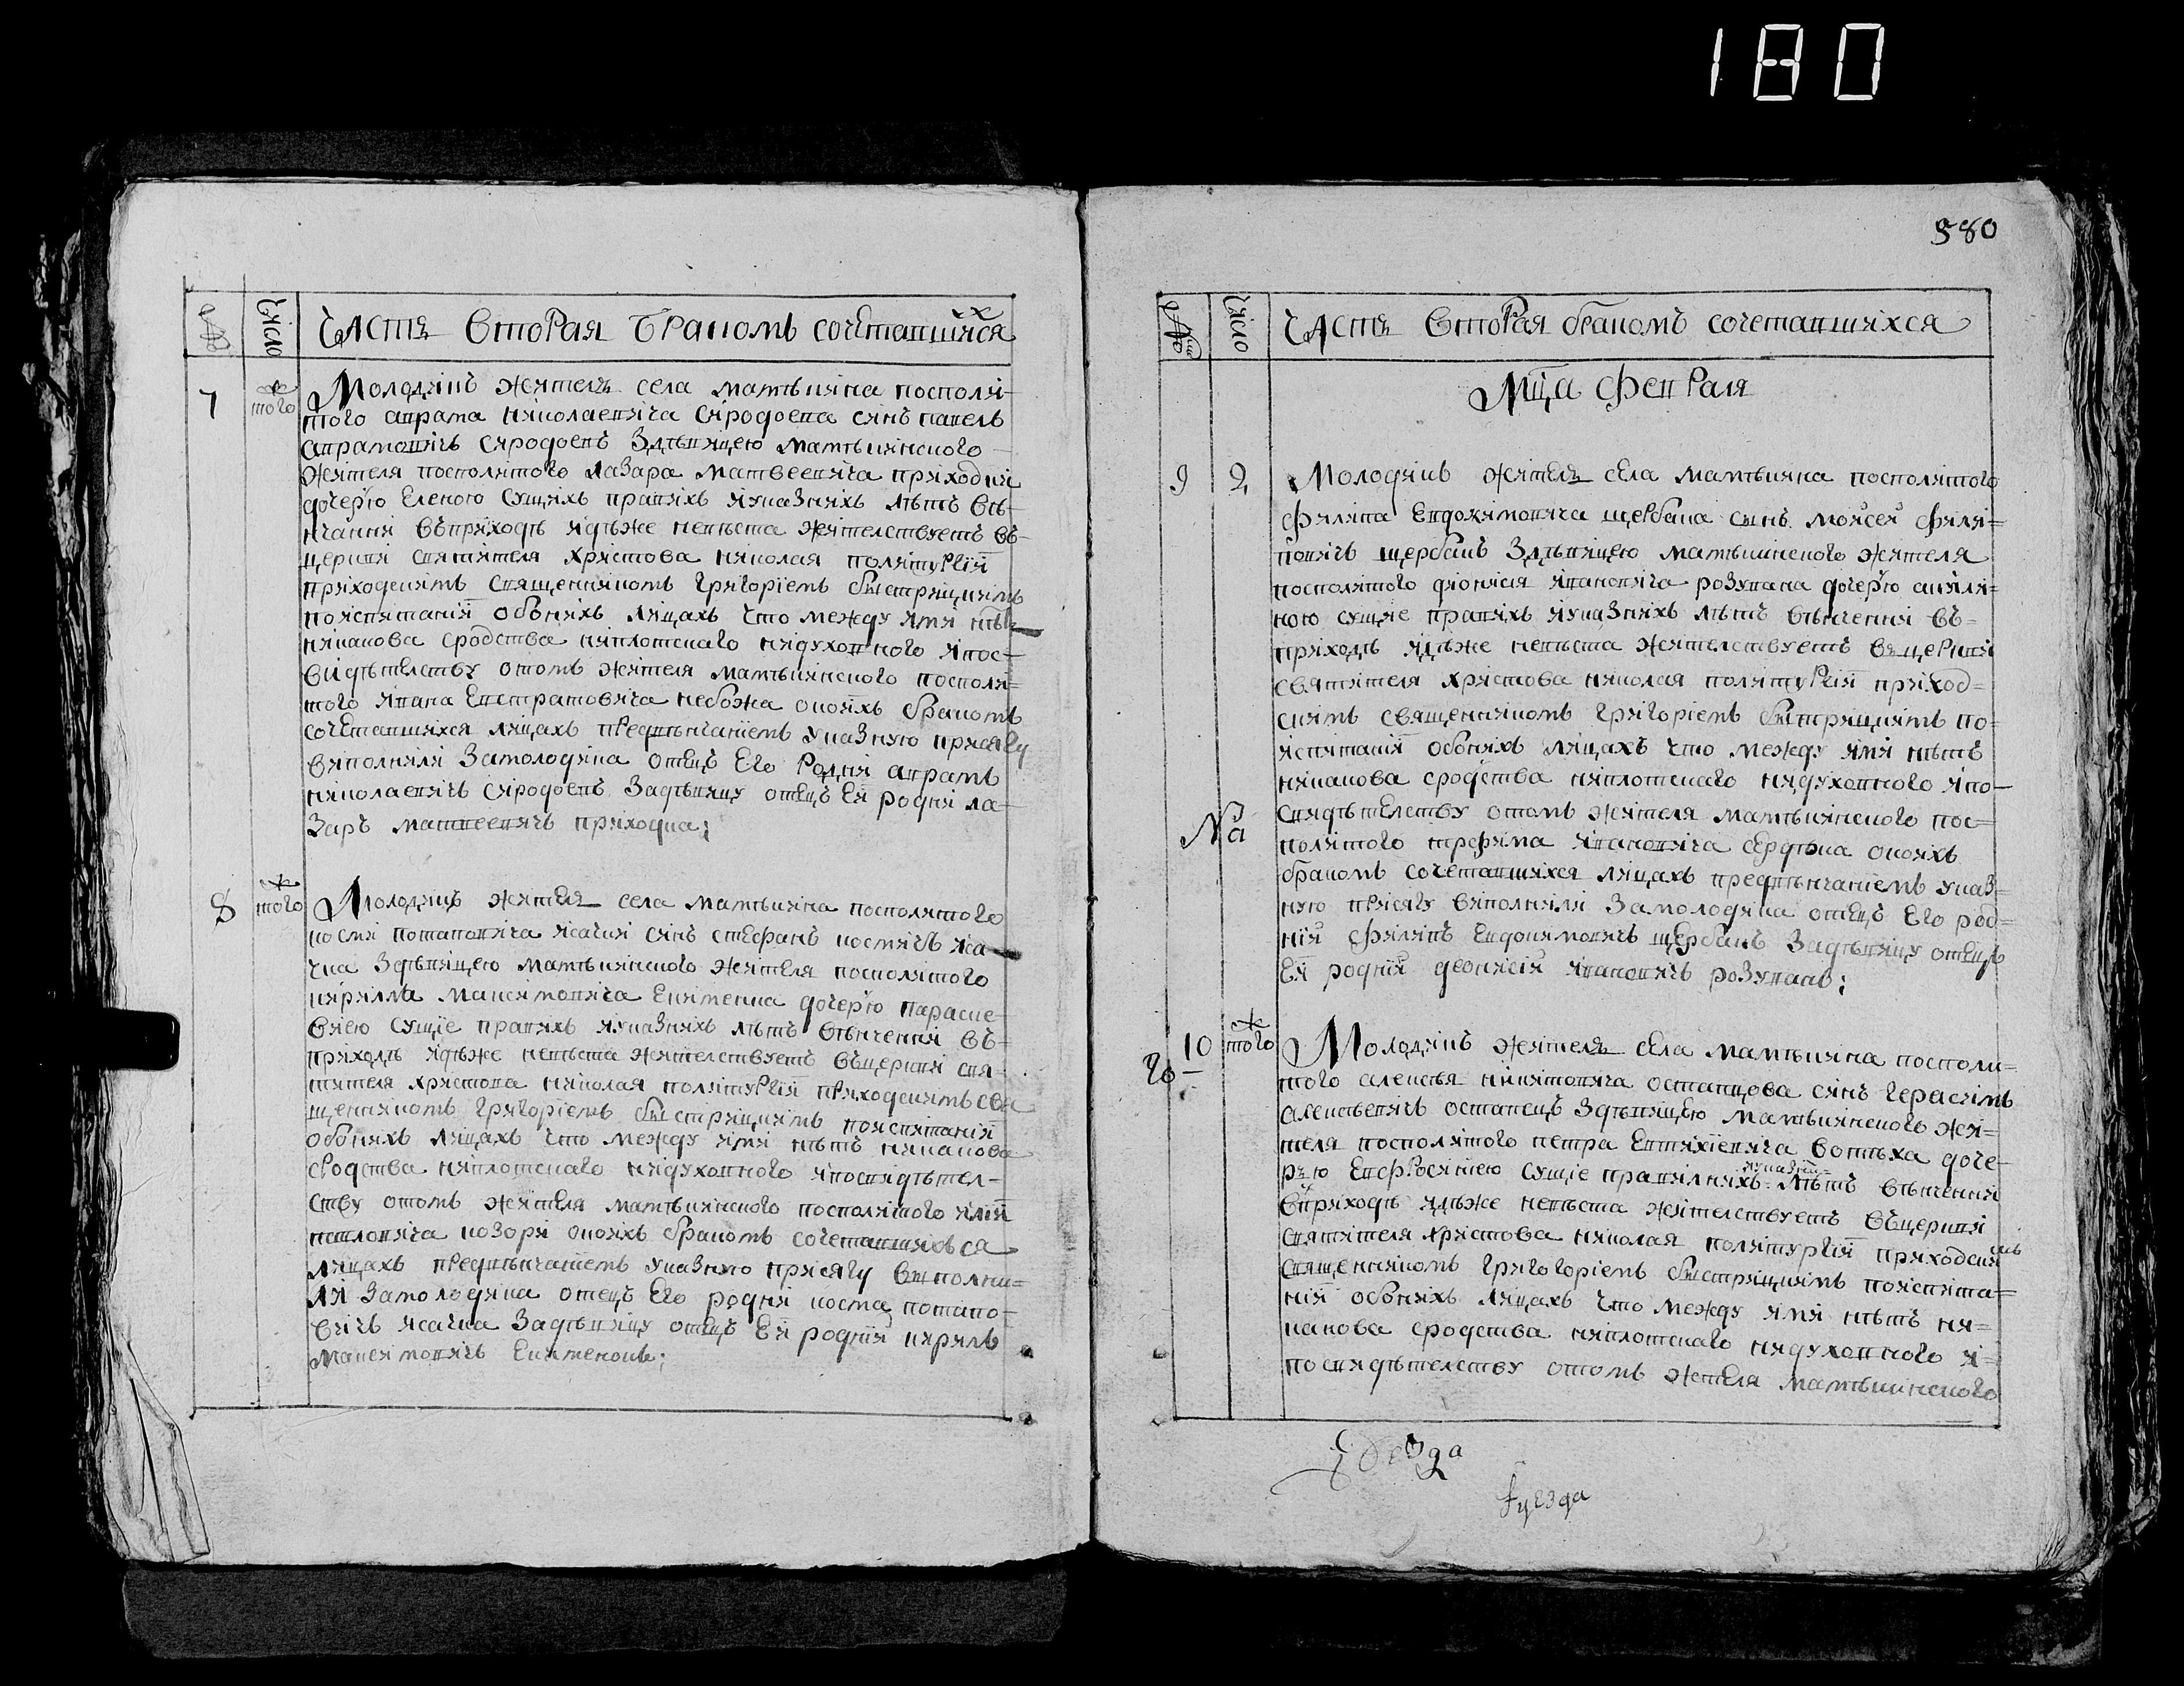 180
580
№ Число Часть Вторая Бракомъ сочетавшихся
7 того Молодикъ житель села Матвѣевка посполи-
того аврама николаевича Сиродоева синъ павелъ
аврамовичъ сиродоевъ Здѣвицею матвѣевского
жителя посполитого лазара матвеевича приходки
дочерю Еленою Сущихъ правихъ иуказнихъ лѣтъ вѣ-
нчания въприходѣ идѣже невѣста жителствуетъ въ-
церкви святителя христова николая политургїи
приходскимъ священникомъ григорїемъ быстрицкимъ
поиспитанїи обоихъ лицахъ что между ими нѣтъ
никакова сродства ниплотскаго нидуховного ипос-
видѣтелству отомъ жителя матвѣевского посполи-
того ивана Евстратовича небожа оноихъ бракомъ
сочетавшихся лицахъ предвѣнчаниемъ указную присягу
виполнили Замолодика отецъ Его Родни аврамъ
николаевичъ сиродоевъ Задѣвицу отецъ Ея родни ла-
заръ матвеевичъ приходка;
8 того Молодикъ житель села матвѣевка посполитого
кости потаповича исачки синъ стефанъ костичъ иса-
чка Здѣвицею матвѣевского жителя посполитого
кирилла максимовича Екименка дочерю параске-
виею сущїе правихъ иуказнихъ лѣтъ вѣнчении въ-
приходѣ идѣже невѣста жителствуетъ въцеркви свя-
тителя христова николая политургїи приходскимъ свя
щенникомъ григорїемъ быстрицкимъ поиспитанїи
обоихъ лицахъ что между ими нѣтъ никакова
сродства ниплотскаго нидуховного ипосвидѣтел-
ству отомъ жителя матвѣевского посполитого
козори оноихъ бракомъ сочетавшихъся
лицахъ предвѣнчаниемъ указную присягу выполни-
ли Замолодика отецъ Его родни коста потапо-
вичъ исачка Задѣвицу отецъ Ея роднїи кирилъ
максимовичъ Екименокъ;
№ Число Часть Вторая бракомъ сочетавшихся
Мца Февраля
9 2 Молодикъ житель села матвѣевка посполитого
филипа Евдокимовича щербака сынъ моисей фили-
повичъ щербакъ Здѣвицею матвѣевского жителя
посполитого дионисия ивановича розувана дочерю акули-
ною сущие правихъ иуказнихъ лѣтъ вѣнчении въ-
приходѣ идѣже невѣста жителствуетъ въцеркви
святителя христова николая политургїи приход-
скимъ священникомъ григорїемъ быстрицкимъ по-
испитанїи обоихъ лицахъ что между ими нѣтъ
никакова сродства ниплотскаго нидуховного ипо-
свидѣтелству отомъ жителя матвѣевского пос-
политого трофима ивановича сердюка оноихъ
бракомъ сочетавшихся лицахъ предвѣнчаниемъ указ-
ную присягу виполнили Замолодика отецъ Его род-
нїи филипъ Евдокимовичъ щербакъ Задѣвицу отецъ
Ея роднїи деонисїи ивановичъ розуванъ;
На
10 того Молодикъ житель села матвѣевка посполи-
того алексѣя никитовича остапцова синъ герасимъ
алексѣевичъ остапецъ Здѣвицею матвѣевского жи-
теля посполитого петра Евтихїевича доче-
рью Евфросиниею сущїе правилнихъ иуказнихъ лѣтъ вѣнчении
въприходѣ идѣже невѣста жителствуетъ въцеркви
святителя христова николая политургїи приходскимъ
священникомъ григорїемъ быстрицкимъ поиспита-
нїи обоихъ лицахъ что между ими нѣтъ ни-
какова сродства ниплотскаго нидуховного и-
посвидѣтелству отомъ жителя матвѣевского
го
уезда